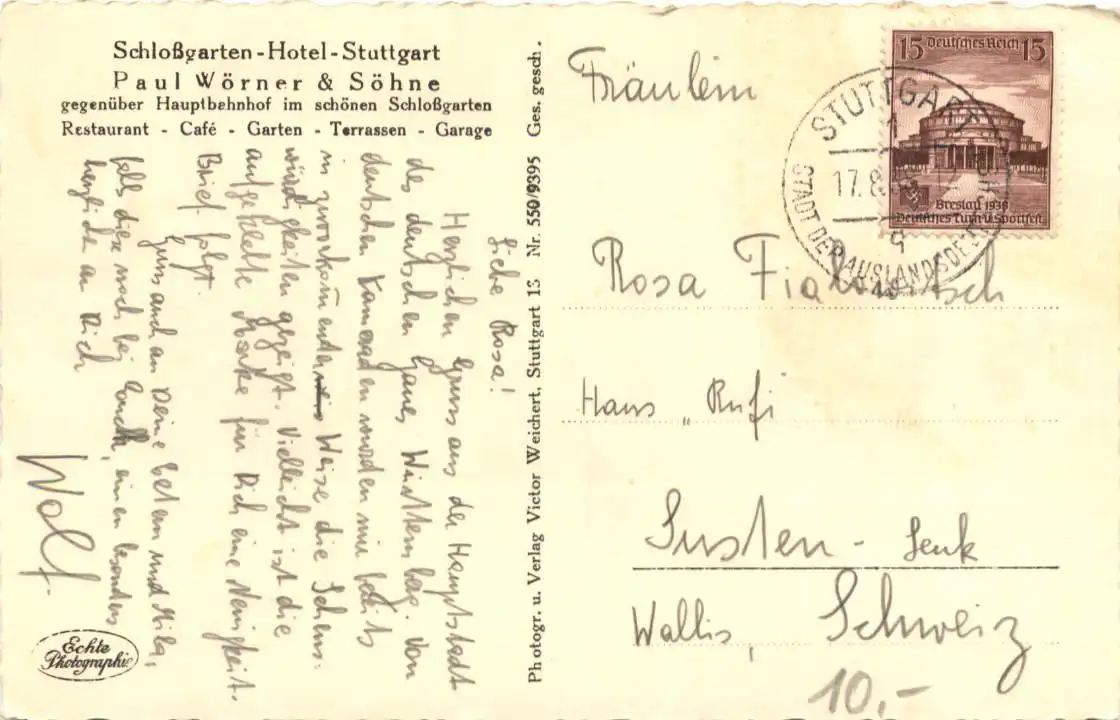 Schloßgarten-Hotel-Stuttgart
Paul Wörner & Söhne
gegenüber Hauptbahnhof im schönen Schloßgarten
Restaurant - Café - Garten - Terrassen - Garage
Liebe Rosa!
Herzlichen Gruss aus der Hauptstadt
des deutschen Gaues Württemberg. Von
deutschen Kameraden wurden mir bereits
in zuvorkommender Weise die Sehens-
würdigkeiten gezeigt. Vielleicht ist die
aufgeklebte Marke für Dich eine Neuigkeit.
Brief folgt.
Gruss auch an Deine Eltern und
falls diese noch bei Euch, einen besonders
herzlichen an Dich
Wolf.
Echte
Photographie
Photogr. u. Verlag Victor Weichert, Stuttgart 13 Nr. 550/9395 Ges. gesch.
15 Deutsches Reich 15
Breslau 1938
Deutsches Turn u. Sportfest
STUTTGART
1
17.8.
STADT DER AUSLANDSDEUTSCHEN
Fräulein
Rosa
Haus "Rufi
Susten - Leuk
Wallis, Schweiz
10,-